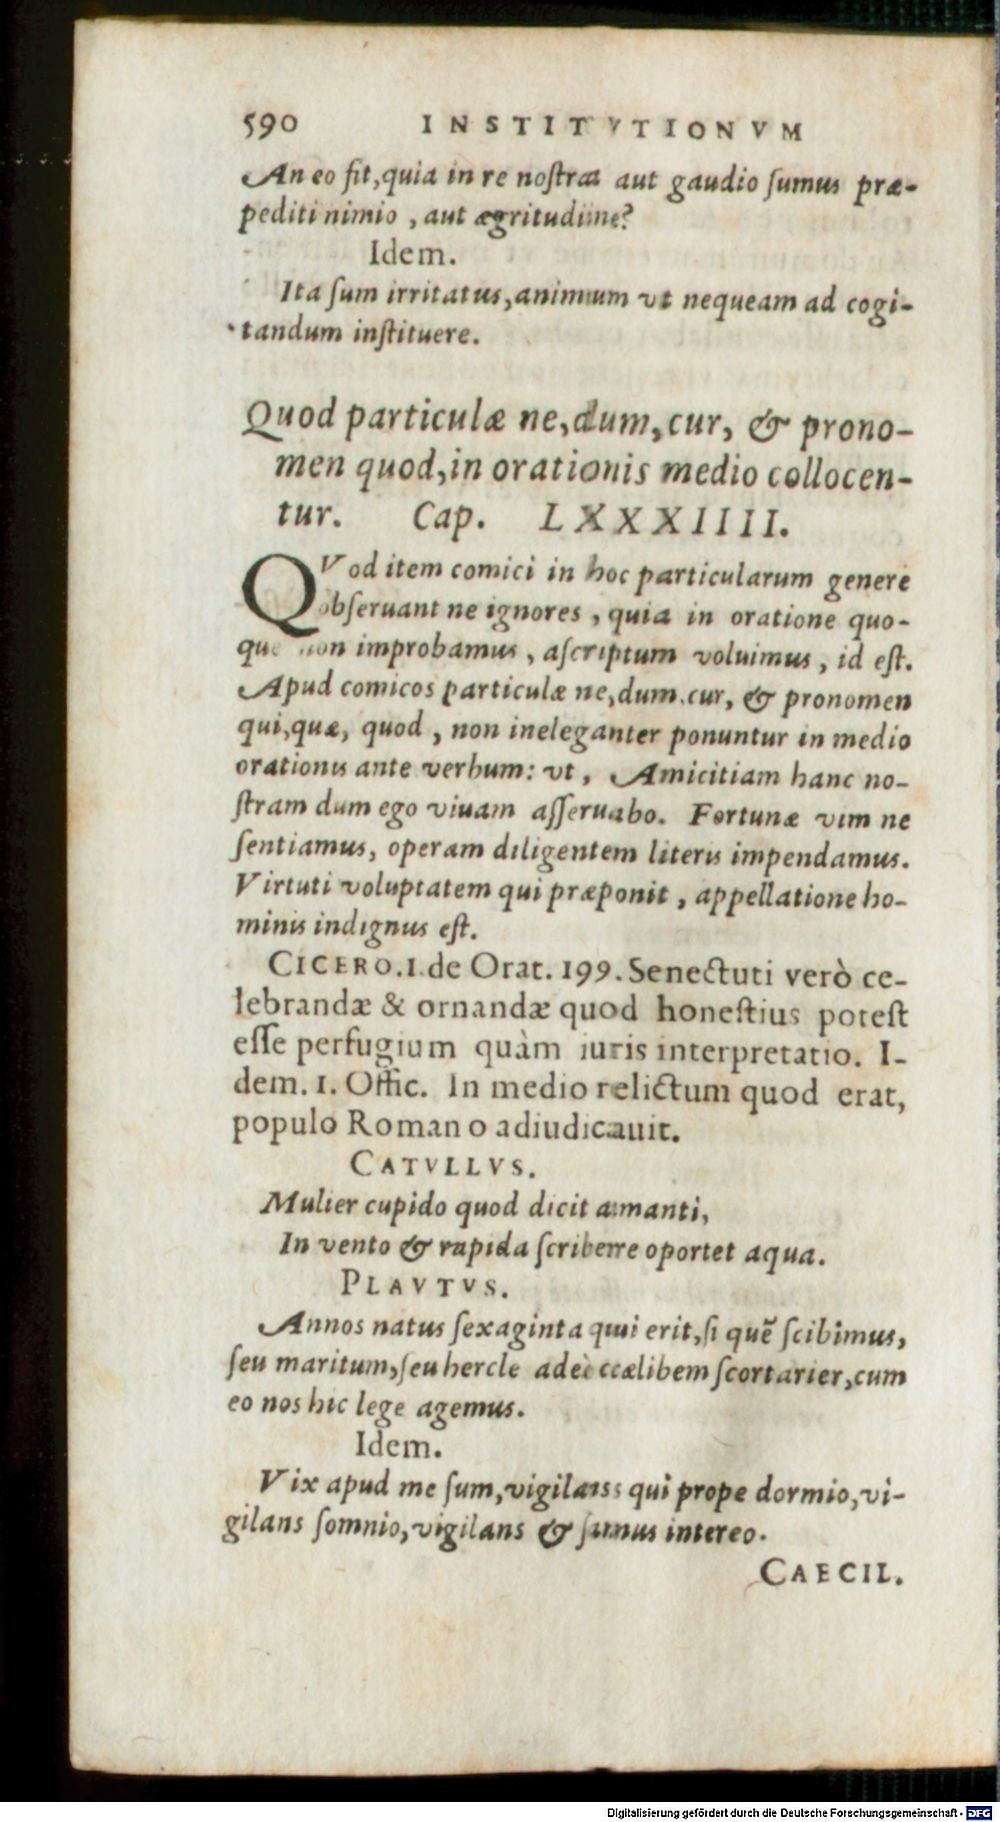 590 INSTITVTIONVM
An eo fit, quia in re nostra aut gaudio sumus præ-
pediti nimio, aut ægritudine?
Idem.
Ita sum irritatus, animum vt nequeam ad cogi-
tandum instituere.
Quod particulæ ne, dum, cur, & prono-
men quod, in orationis medio collocen-
tur. Cap. LXXXIIII.
QVod item comici in hoc particularum genere
obseruant ne ignores, quia in oratione quo-
que non improbamus, ascriptum voluimus, id est.
Apud comicos particulæ ne, dum, cur, & pronomen
qui, quæ, quod, non ineleganter ponuntur in medio
orationis ante verbum: vt, Amicitiam hanc no-
stram dum ego viuam asseruabo. Fortunæ vim ne
sentiamus, operam diligentem literis impendamus.
Virtuti voluptatem qui præponit, appellatione ho-
minis indignus est.
CICERO. 1. de Orat. 199. Senectuti verò ce-
lebrandæ & ornandæ quod honestius potest
esse perfugium quàm iuris interpretatio. I-
dem. 1. Offic. In medio relictum quod erat,
populo Romano adiudicauit.
CATVLLVS.
Mulier cupido quod dicit amanti,
In vento & rapida scribere oportet aqua.
PLAVTVS.
Annos natus sexaginta qui erit, si quē scibimus,
seu maritum, seu hercle adeò cælibem scortarier, cum
eo nos hic lege agemus.
Idem.
Vix apud me sum, vigilans qui prope dormio, vi-
gilans somnio, vigilans & sanus intereo.
CAECIL.
Digitalisierung gefördert durch die Deutsche Forschungsgemeinschaft - DFG